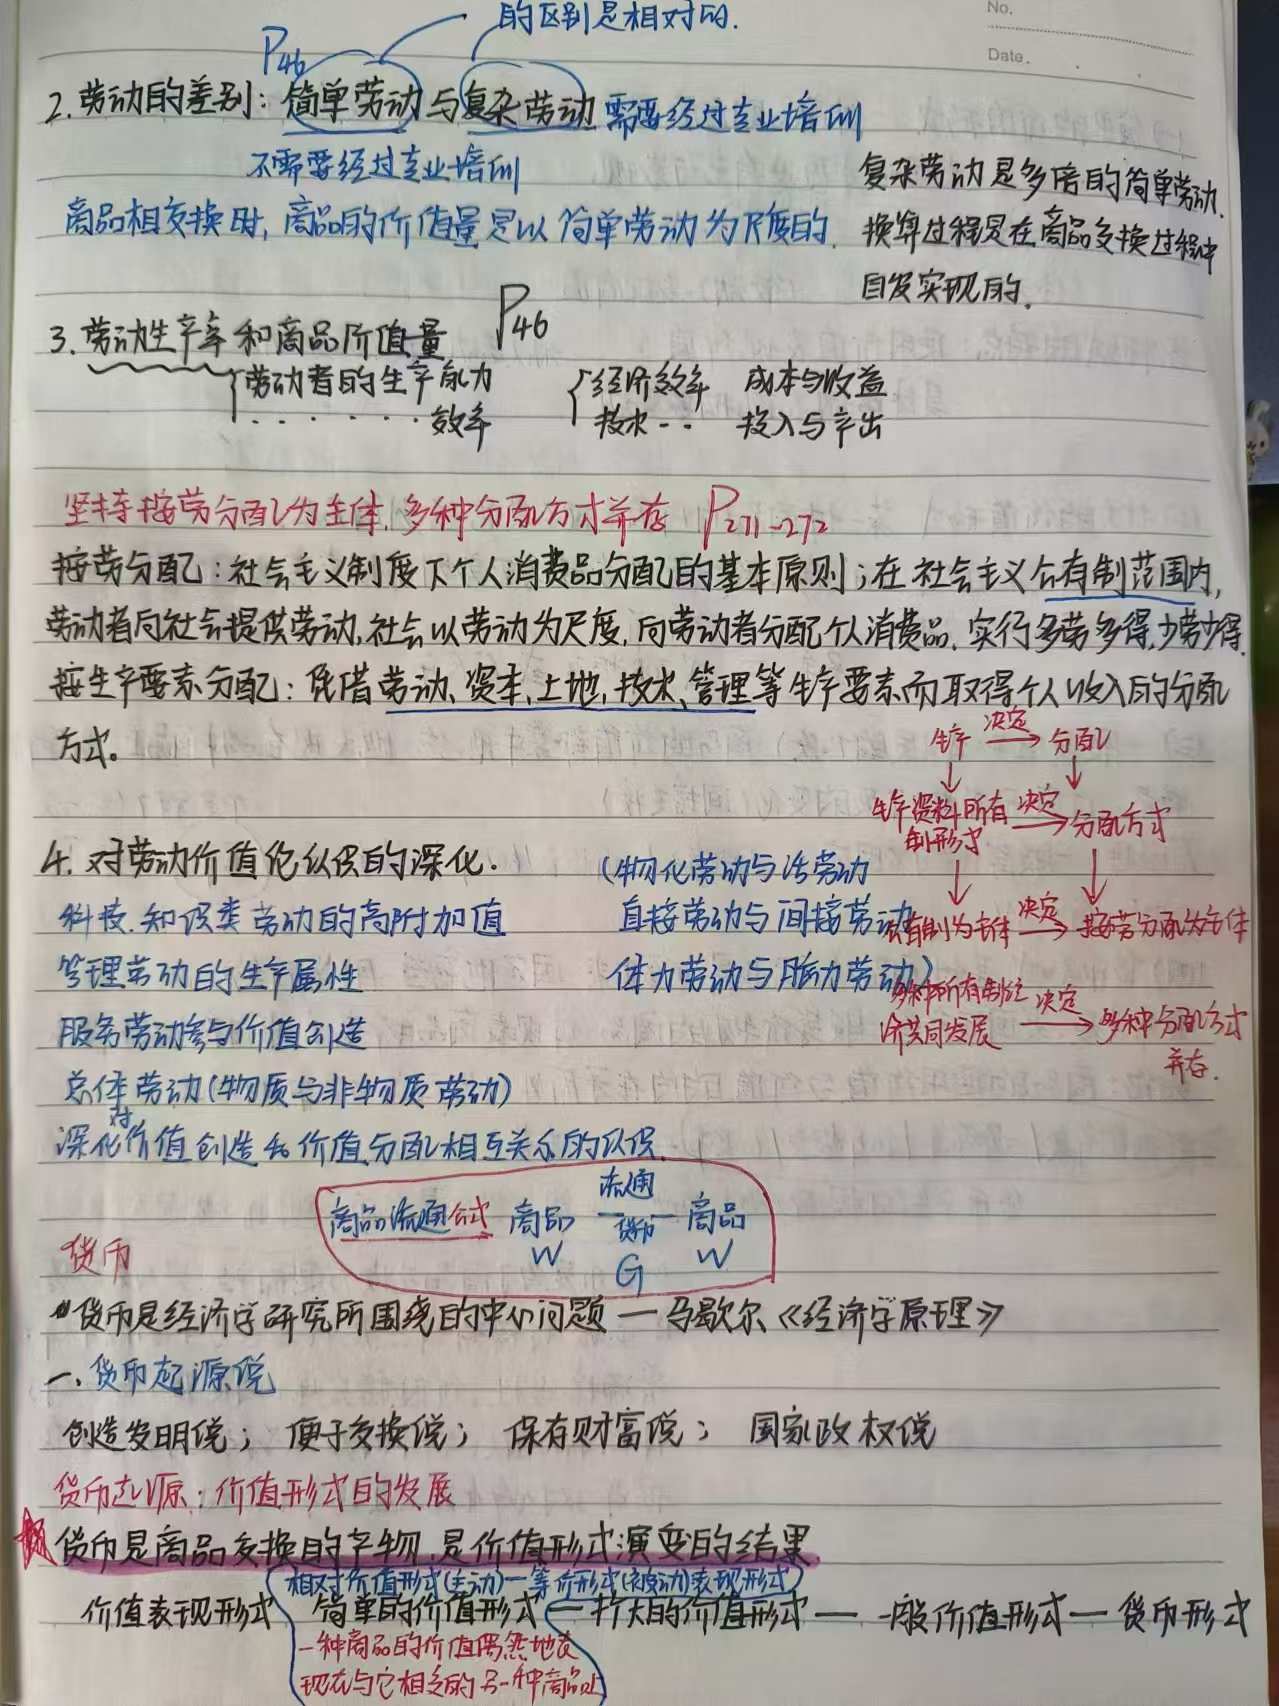 No.
Date.
的区别是相对的.
P46
2.劳动的差别:简单劳动与复杂劳动 需要经过专业培训
不需要经过专业培训
复杂劳动是多倍的简单劳动.
商品相交换时,商品的价值量是以简单劳动为尺度的.
换算过程是在商品交换过程中
自发实现的.
3.劳动生产率和商品价值量 P46
{劳动者的生产能力
......效率
{经济效率 成本与收益
技术.. 投入与产出
坚持按劳分配为主体,多种分配方式并存 P271-272
按劳分配:社会主义制度下个人消费品分配的基本原则;在社会主义公有制范围内,
劳动者向社会提供劳动,社会以劳动为尺度,向劳动者分配个人消费品,实行多劳多得,少劳少得.
按生产要素分配:凭借劳动、资本、土地、技术、管理等生产要素而取得个人收入的分配
方式。
生产 决定→ 分配
↓ ↓
生产资料所有制形式 决定→ 分配方式
↓ ↓
公有制为主体 决定→ 按劳分配为主体
多种所有制经济共同发展 决定→ 多种分配方式
并存.
4.对劳动价值论认识的深化.
(物化劳动与活劳动
科技.知识类劳动的高附加值
直接劳动与间接劳动
管理劳动的生产属性
体力劳动与脑力劳动)
服务劳动参与价值创造
总体劳动(物质与非物质劳动)
深化对价值创造和价值分配相互关系的认识.
商品流通公式 商品 —流通 货币— 商品
W G W
货币
"货币是经济学研究所围绕的中心问题 — 马歇尔《经济学原理》
一.货币起源说
创造发明说; 便于交换说; 保存财富说; 国家政权说
货币起源:价值形式的发展
货币是商品交换的产物,是价值形式演变的结果
相对价值形式(主动)—等价形式(被动)表现形式)
价值表现形式 简单的价值形式—扩大的价值形式—一般价值形式—货币形式
一种商品的价值偶然地表
现在与它相交的另一种商品上